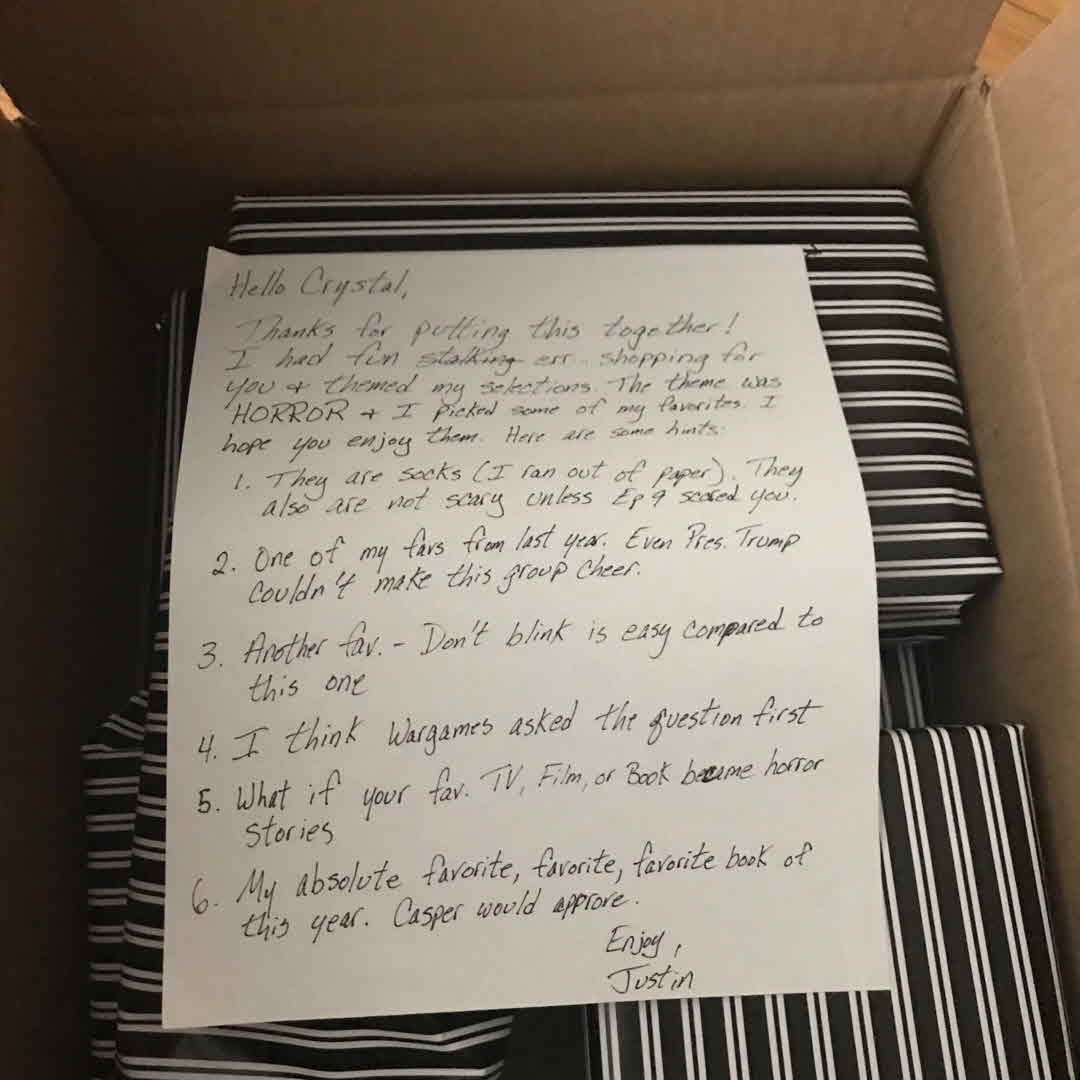 Hello Crystal,
Thanks for putting this together!
I had fun stalking err.. shopping for
you & themed my selections. The theme was
HORROR & I picked some of my favorites. I
hope you enjoy them. Here are some hints:
1. They are socks (I ran out of paper). They
also are not scary unless Ep 9 scared you.
2. One of my favs from last year. Even Pres. Trump
couldn't make this group cheer.
3. Another fav. - Don't blink is easy compared to
this one
4. I think Wargames asked the question first
5. What if your fav. TV, Film, or Book became horror
stories
6. My absolute favorite, favorite, favorite book of
this year. Casper would approve.
Enjoy,
Justin